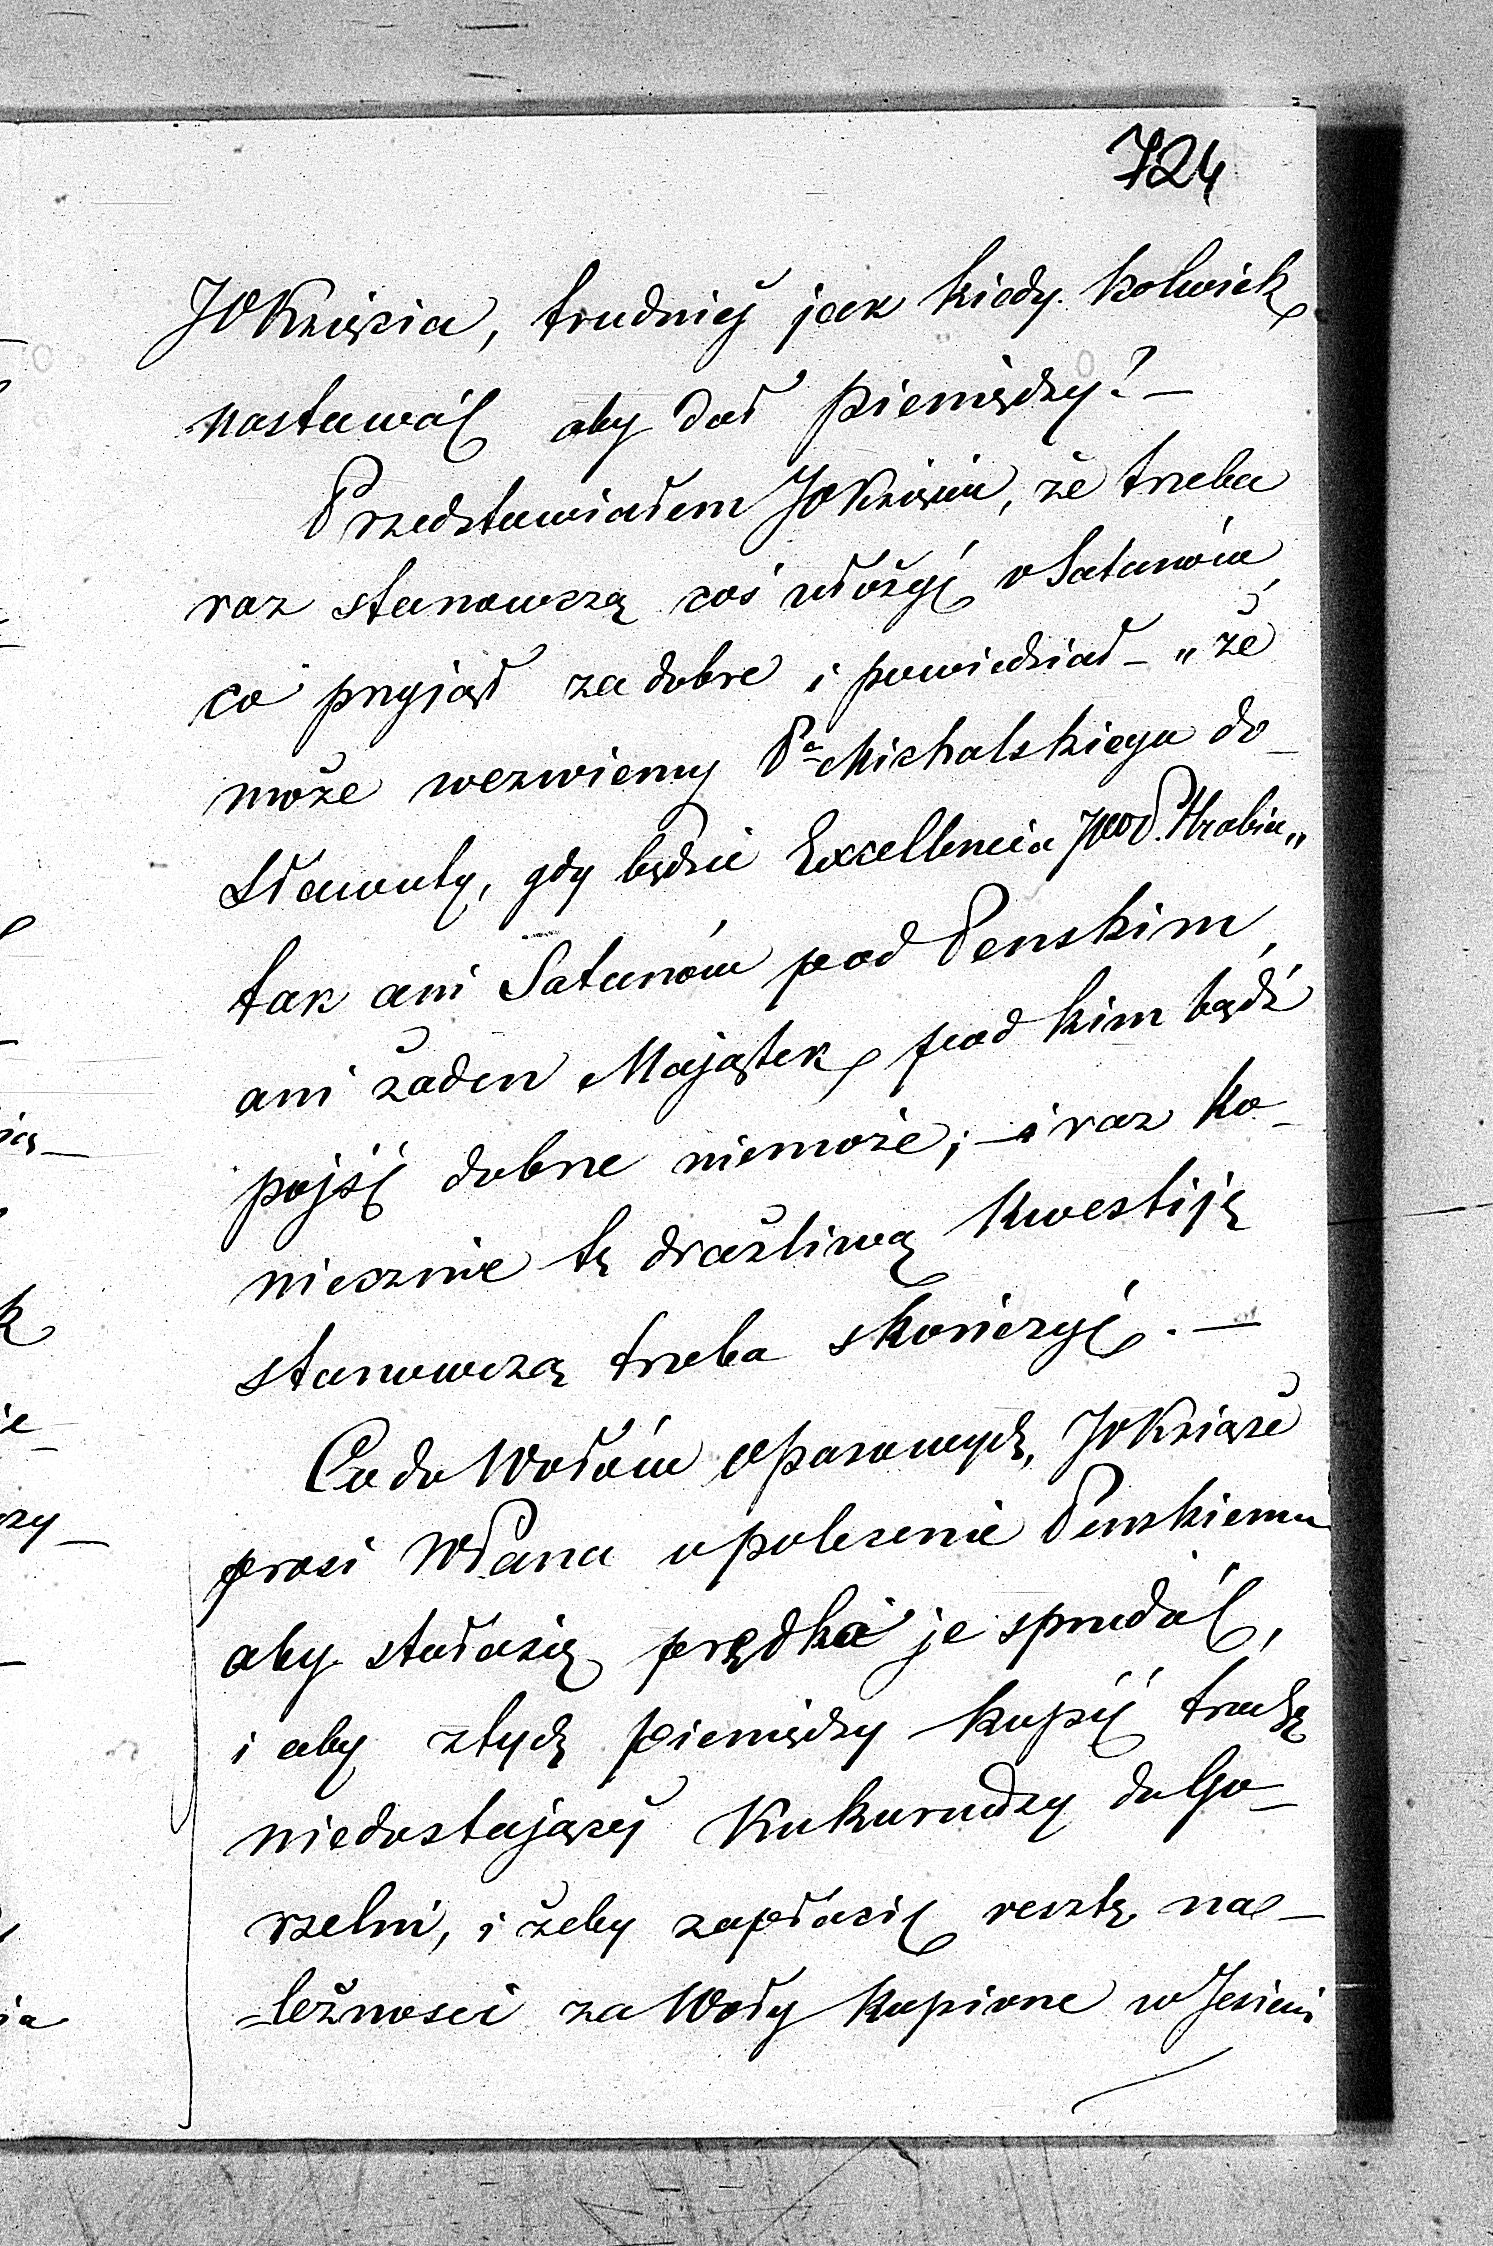 724
JO Księcia, trudniej jak kiedy kolwiek
nastawać aby dał pieniędzy! —
Przedstawiałem JO Księciu, że trzeba
raz stanowczą coś ułożyć o Satanów,
co przyjął za dobre i powiedział — „że
może wezwiemy Pa Michalskiego do
Sławuty, gdy będzie Excellencia JWP. Hrabia„
tak ani Satanów pod Penskim,
ani żaden Majątek pod kim bądź
pojść dobrze niemoże; — i raz ko-
niecznie tę drażliwą kwestiję
stanowczą trzeba skończyć. —
Co do Wołów opasowych, JO Książe
prosi WPana o polecenie Penskiemu
aby starał się prędko je sprzedać,
i aby z tych pieniędzy kupić trochę
niedostającej Kukurudzy do Go-
rzelni, i żeby zapłacić resztę na-
-leżnosci za Woły kupione w Jesieni